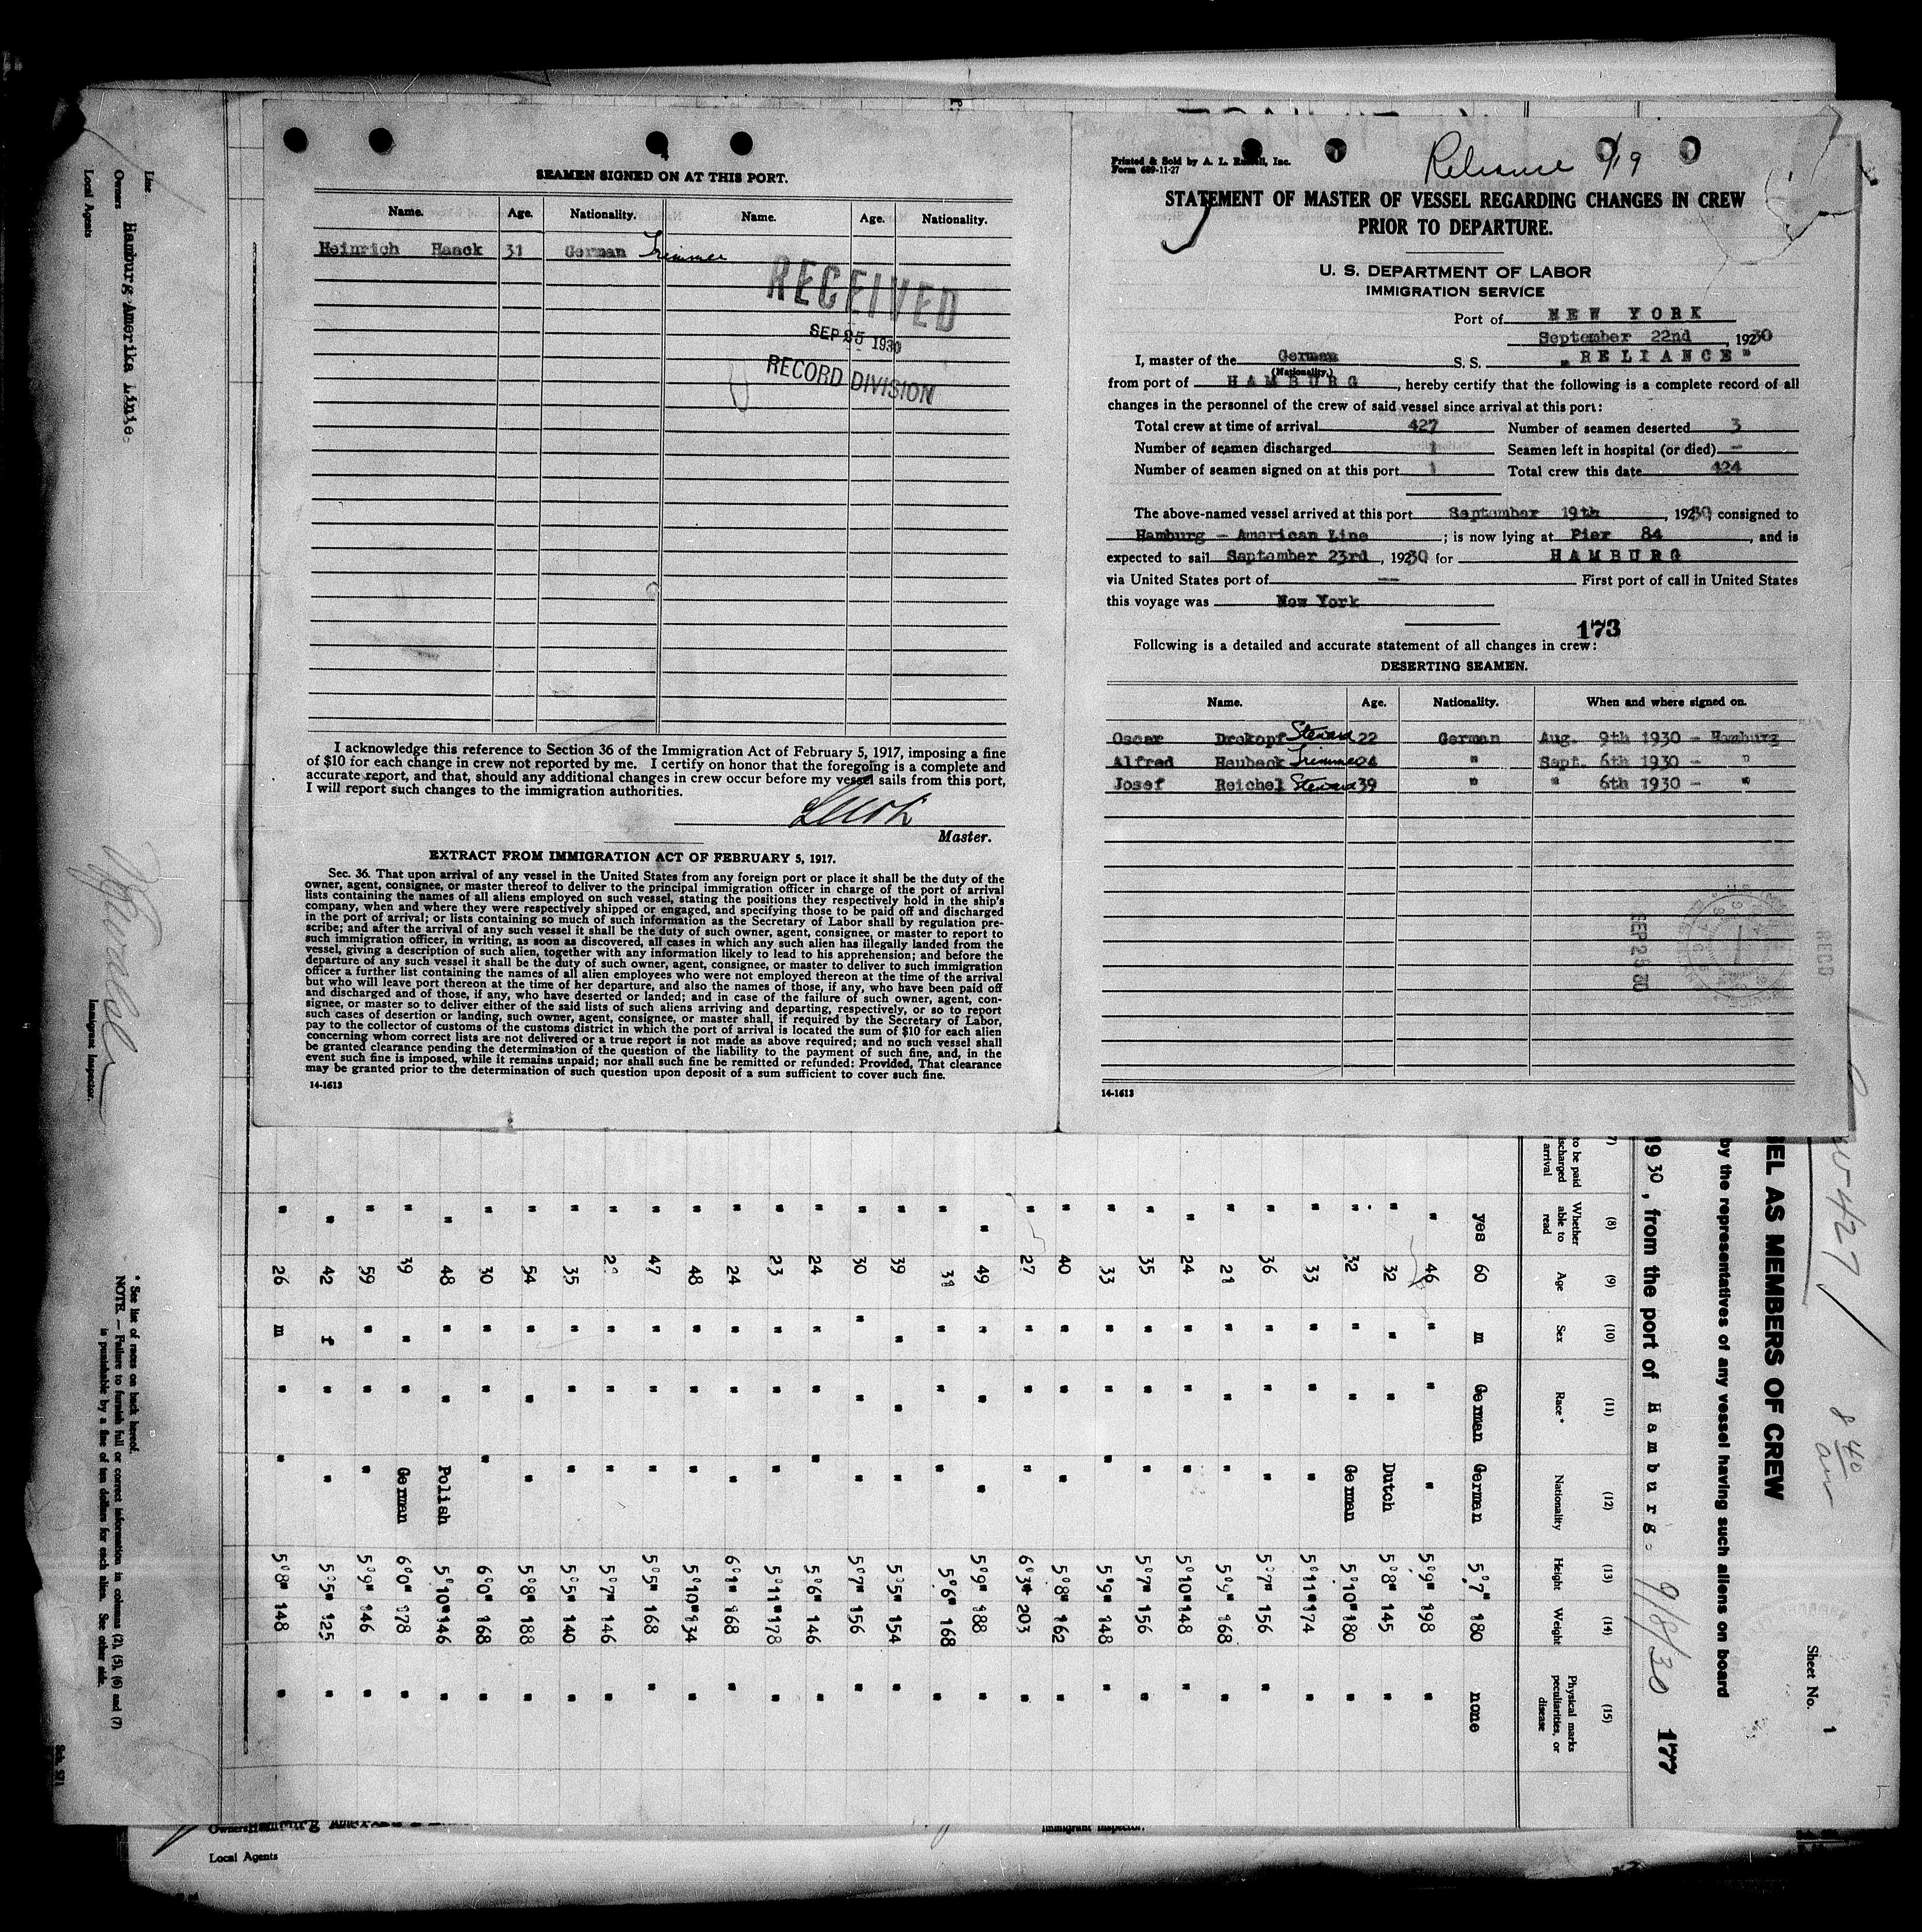 SEAMEN SIGNED ON AT THIS PORT.
Name. Age. Nationality. Name. Age. Nationality.
Heinrich Haack 31 German Trimmer
RECEIVED
SEP 25 1930
RECORD DIVISION
I acknowledge this reference to Section 36 of the Immigration Act of February 5, 1917, imposing a fine
of $10 for each change in crew not reported by me. I certify on honor that the foregoing is a complete and
accurate report, and that, should any additional changes in crew occur before my vessel sails from this port,
I will report such changes to the immigration authorities.
Master.
EXTRACT FROM IMMIGRATION ACT OF FEBRUARY 5, 1917.
Sec. 36. That upon arrival of any vessel in the United States from any foreign port or place it shall be the duty of the
owner, agent, consignee, or master thereof to deliver to the principal immigration officer in charge of the port of arrival
lists containing the names of all aliens employed on such vessel, stating the positions they respectively hold in the ship's
company, when and where they were respectively shipped or engaged, and specifying those to be paid off and discharged
in the port of arrival; or lists containing so much of such information as the Secretary of Labor shall by regulation pre-
scribe; and after the arrival of any such vessel it shall be the duty of such owner, agent, consignee, or master to report to
such immigration officer, in writing, as soon as discovered, all cases in which any such alien has illegally landed from the
vessel, giving a description of such alien, together with any information likely to lead to his apprehension; and before the
departure of any such vessel it shall be the duty of such owner, agent, consignee, or master to deliver to such immigration
officer a further list containing the names of all alien employees who were not employed thereon at the time of the arrival
but who will leave port thereon at the time of her departure, and also the names of those, if any, who have been paid off
and discharged and of those, if any, who have deserted or landed; and in case of the failure of such owner, agent, con-
signee, or master so to deliver either of the said lists of such aliens arriving and departing, respectively, or so to report
such cases of desertion or landing, such owner, agent, consignee, or master shall, if required by the Secretary of Labor,
pay to the collector of customs of the customs district in which the port of arrival is located the sum of $10 for each alien
concerning whom correct lists are not delivered or a true report is not made as above required; and no such vessel shall
be granted clearance pending the determination of the question of the liability to the payment of such fine, and, in the
event such fine is imposed, while it remains unpaid; nor shall such fine be remitted or refunded: Provided, That clearance
may be granted prior to the determination of such question upon deposit of a sum sufficient to cover such fine.
14-1613
Printed & Sold by A. L. Russell, Inc.
Form 689-11-27
Reliance 9/19
STATEMENT OF MASTER OF VESSEL REGARDING CHANGES IN CREW
PRIOR TO DEPARTURE.
U. S. DEPARTMENT OF LABOR
IMMIGRATION SERVICE
Port of NEW YORK
September 22nd, 1930
I, master of the German S. S. "RELIANCE"
(Nationality.)
from port of HAMBURG, hereby certify that the following is a complete record of all
changes in the personnel of the crew of said vessel since arrival at this port:
Total crew at time of arrival 427 Number of seamen deserted 3
Number of seamen discharged 1 Seamen left in hospital (or died) —
Number of seamen signed on at this port 1 Total crew this date 424
The above-named vessel arrived at this port September 19th, 1930, consigned to
Hamburg - American Line; is now lying at Pier 84, and is
expected to sail September 23rd, 1930 for HAMBURG
via United States port of — First port of call in United States
this voyage was New York
173
Following is a detailed and accurate statement of all changes in crew:
DESERTING SEAMEN.
Name. Age. Nationality. When and where signed on.
Oscar Drokopf Steward 22 German Aug. 9th 1930 - Hamburg
Alfred Haubeck Trimmer 24 " Sept. 6th 1930 - "
Josef Reichel Steward 39 " " 6th 1930 - "
SEP 25 30
RECD
14-1613
Line
Owners Hamburg-Amerika Linie.
Local Agents
Immigrant Inspector.
* See list of races on back hereof.
NOTE. — Failure to furnish full or correct information in columns (2), (5), (6) and (7)
is punishable by a fine of ten dollars for each alien. See other side.
427
8 40 am
Sheet No. 1
EL AS MEMBERS OF CREW
by the representatives of any vessel having such aliens on board
1930, from the port of Hamburg. 9/8/30 177
7) (8) (9) (10) (11) (12) (13) (14) (15)
to be paid
scharged
arrival
Whether able to read Age Sex Race* Nationality Height Weight Physical marks peculiarities, or disease
yes 60 m German German 5'7" 180 none
" 46 " " " 5'9" 198 "
" 32 " " Dutch 5'8" 145 "
" 32 " " German 5'10" 180 "
" 33 " " " 5'11" 174 "
" 36 " " " 5'7" 156 "
" 21 " " " 5'9" 168 "
" 24 " " " 5'10" 148 "
" 35 " " " 5'7" 156 "
" 33 " " " 5'9" 148 "
" 40 " " " 5'8" 162 "
" 27 " " " 6'3" 203 "
" 49 " " " 5'9" 188 "
" 38 " " " 5'6" 168 "
" 39 " " " 5'5" 154 "
" 30 " " " 5'7" 156 "
" 24 " " " 5'6" 146 "
" 23 " " " 5'11" 178 "
" 24 " " " 6'1" 168 "
" 48 " " " 5'10" 134 "
" 47 " " " 5'5" 168 "
" " " " 5'7" 146 "
" 35 " " " 5'5" 140 "
" 54 " " " 5'8" 188 "
" 30 " " " 6'0" 168 "
" 48 " " Polish 5'10" 146 "
" 39 " " German 6'0" 178 "
" 59 " " " 5'9" 146 "
" 42 f " " 5'5" 125 "
" 26 m " " 5'8" 148 "
Owners
Immigrant Inspector.
Local Agents